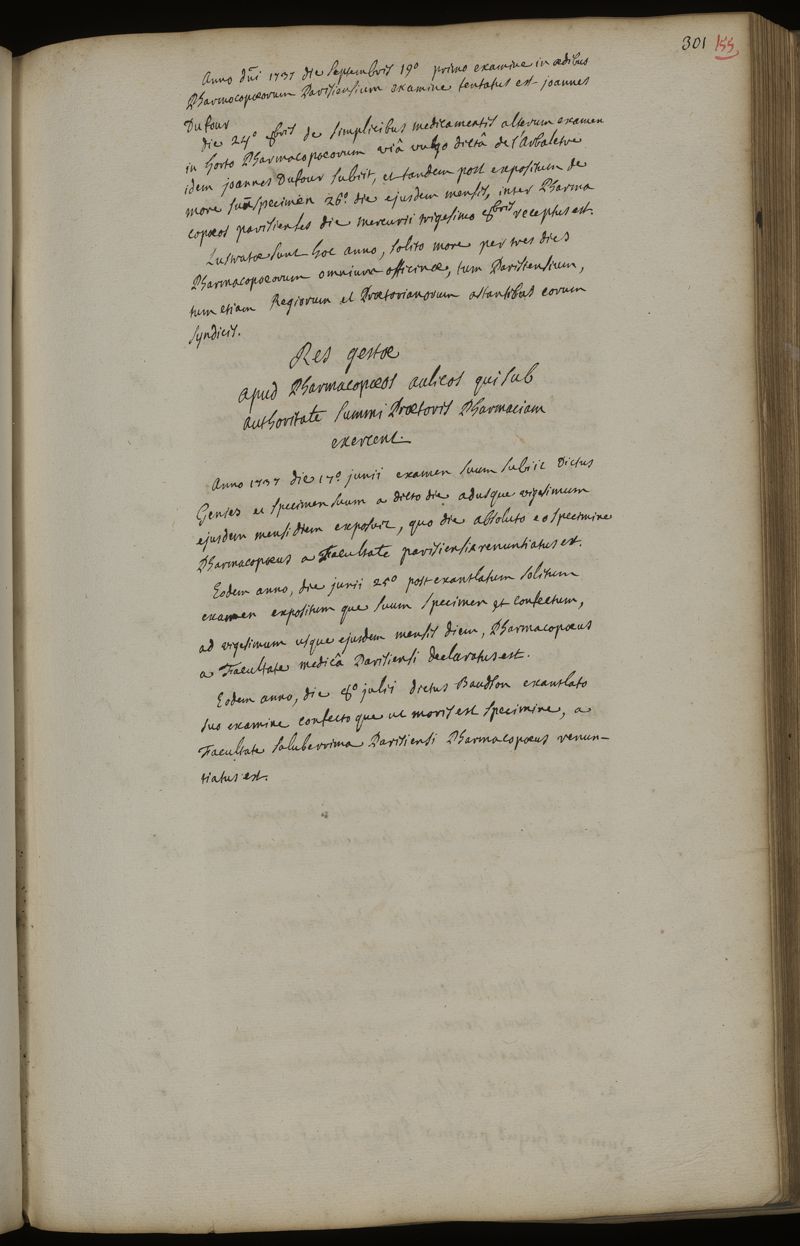 301 155
Anno dñi 1737 die septembris 19º primo examine in ædibus
Pharmocopæorum Parisiensium examine tentatus est joannes
Dufour
die 24º 8bris de simplicibus medicamentis alterum examen
in horto Pharmacopæorum viâ vulgo dictâ de l'Arbaletre
idem joannes Dufour subiit, et tandem post expositum de
more suū specimen 26º die ejusdem mensis, inter Pharma
copæos parisienses die mercurii trigesimo 8bris receptus est.
Lustratæ sunt hoc anno, solito more per tres dies
Pharmacopæorum omnium officinæ, tum Parisiensium,
tum etiam Regiorum et Prætorianorum astantibus eorum
syndicis.
Res gestæ
apud Pharmacopæos aulicos qui sub
authoritate summi Prætoris Pharmaciam
exercent.
Anno 1737 die 17º junii examen suum subiit Dictus
Genies et specimen suum a dicto die adusque vigesimum
ejusdem mensis diem exposuit, quo die absoluto eo specimine
Pharmacopæus a Facultate parisiensi renuntiatus est.
Eodem anno, die junii 25º post exantlatum solitum
examen expositum que suum specimen et confectum,
ad vigesimum usque ejusdem mensis diem, Pharmacopæus
a Facultate medicâ Parisiensi declaratus est.
Eodem anno, die 8º julii dictus Baudson exantlato
suo examine confecto que ut moris est specimine, a
Facultate saluberrima Parisiensi Pharmacopæus renun-
tiatus est.